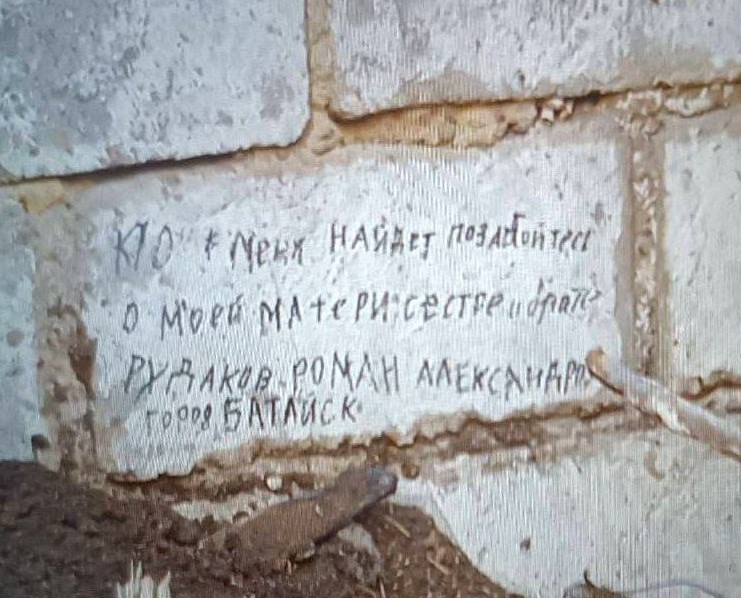 КТО меня НАЙДЕТ ПОЗАБОЙТЕСЬ
О МОЕЙ МАТЕРИ СЕСТРЕ и брате
РУДАКОВ РОМАН АЛЕКСАНДРО
город БАТАЙСК